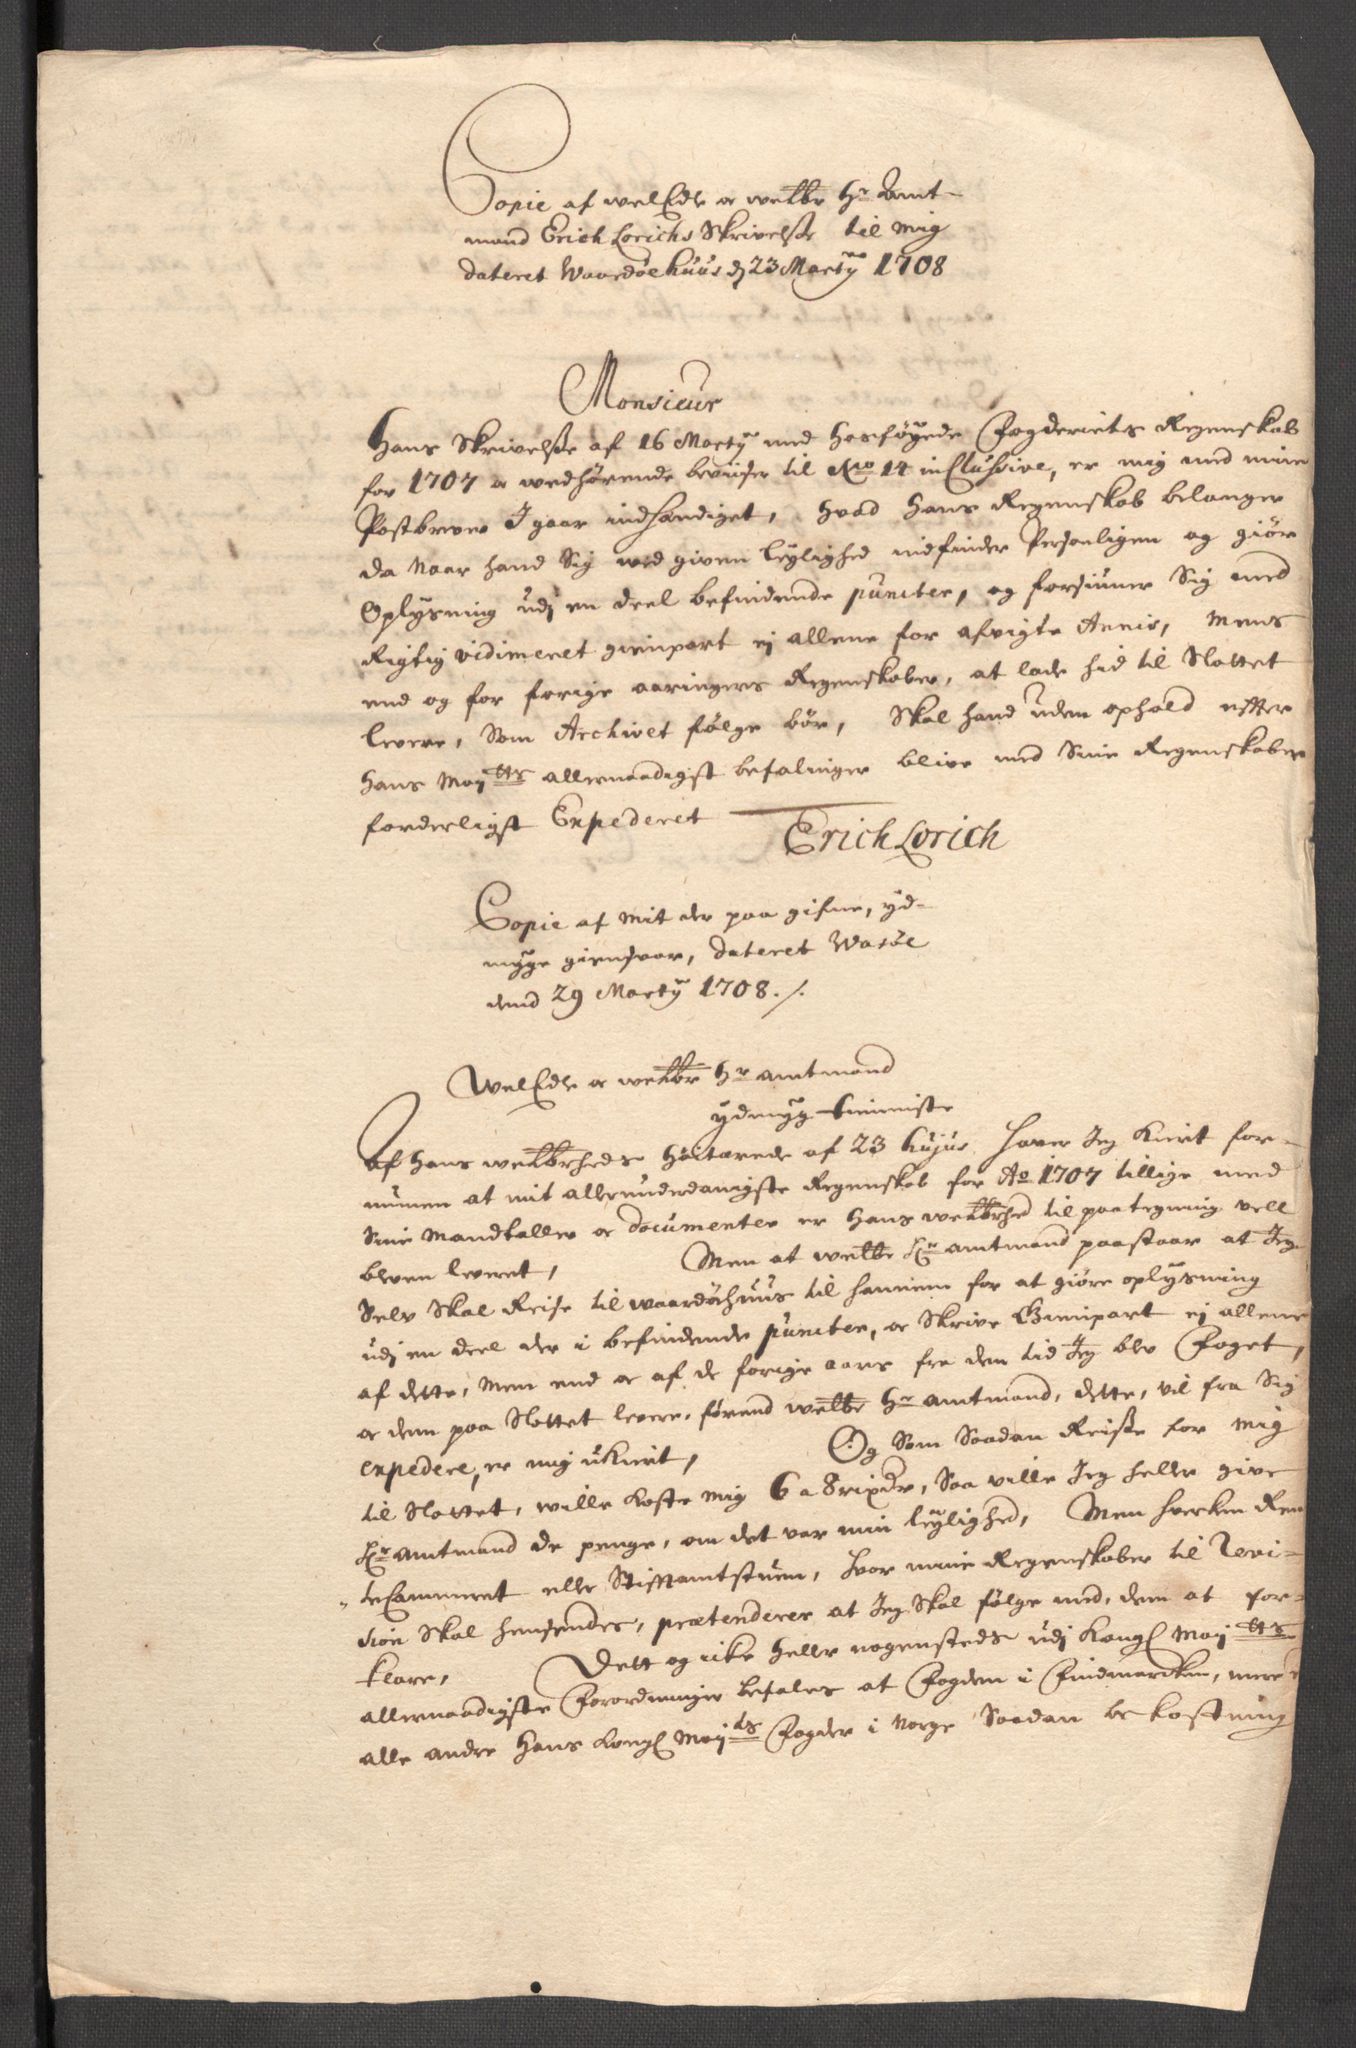 Copie af welEdle oc welbr Hr Ambt-
mand Erich Lorichs Skrivelse til mig
dateret Waardøehuus dj 23 Martij 1708
Monsieur
Hans Skrivelse af 16 Martij med hosføyede Fogderiets Regenskab
for 1707 oc wedhørende beviiser til No 14 inClusive, er mig med mine
Postbreve I gaar indhændiget, hvad hans Regenskab belanger
da naar hand Sig wed given leylighed indfinder Personligen og giør
Oplysning udj en deel befindende puncter, og forsiuner Sig med
Rigtig vidimeret gienpart ej allene for afvigte Annis, mens
end og for forige aaringers Regenskaber, at lade hid til Slottet
levere, Som Archivet følge bør, Skal hand uden ophold effter
hans Mayttz allernaadigst befalinger blive med Sine Regenskaber
forderligst Expederet
Erich Lorich
Copie af mit der paa gifne, yd-
myge giensvar, dateret Wasöe
dend 29 Martij 1708 ./.
WelEdle oc welbr Hr amtmand
ydmyg tieniste
Af hans welbrheds høitærede af 23 hujus haver Jeg kunt for-
nummen at mit allerunderdanigste Regenskab for Ao 1707 tillige med
Sine Mandtaller oc documenter er hans welbrhed til paategning vell
bleven leveret, Men at welbr Hr amtmand paastaar at Jeg
Selv Skal Reise til waardøhuus til hannem for at giøre oplysning
udj en deel der i befindende puncter, oc Skrive Gienpart ej allene
af dette, Men end oc af de forige aars fra den tid Jeg blev Foget,
oc dem paa Slottet levere, førend welbr Hr amtmand, dette, vil fra Sig
expedere, er mig ukunt, Og Som Saadan Reise for mig
til Slottet, wille koste mig 6 a 8 rixdr, Saa ville Jeg heller give
Hr amtmand de penge, om det var min leylighed, Men hverken Ren-
teCammeret eller Stifftamtstuen, hvor mine Regenskaber til Revi-
sion Skal hensendes, prætenderer at Jeg Skal følge med, dem at for-
klare, Dett og icke heller nogensteds udj Kongl Mayttz
allernaadigste Forordninger befales at Fogden i Findmarcken, mere
alle andre hans Kongl Mayts Fogder i Norge Saadan bekostning